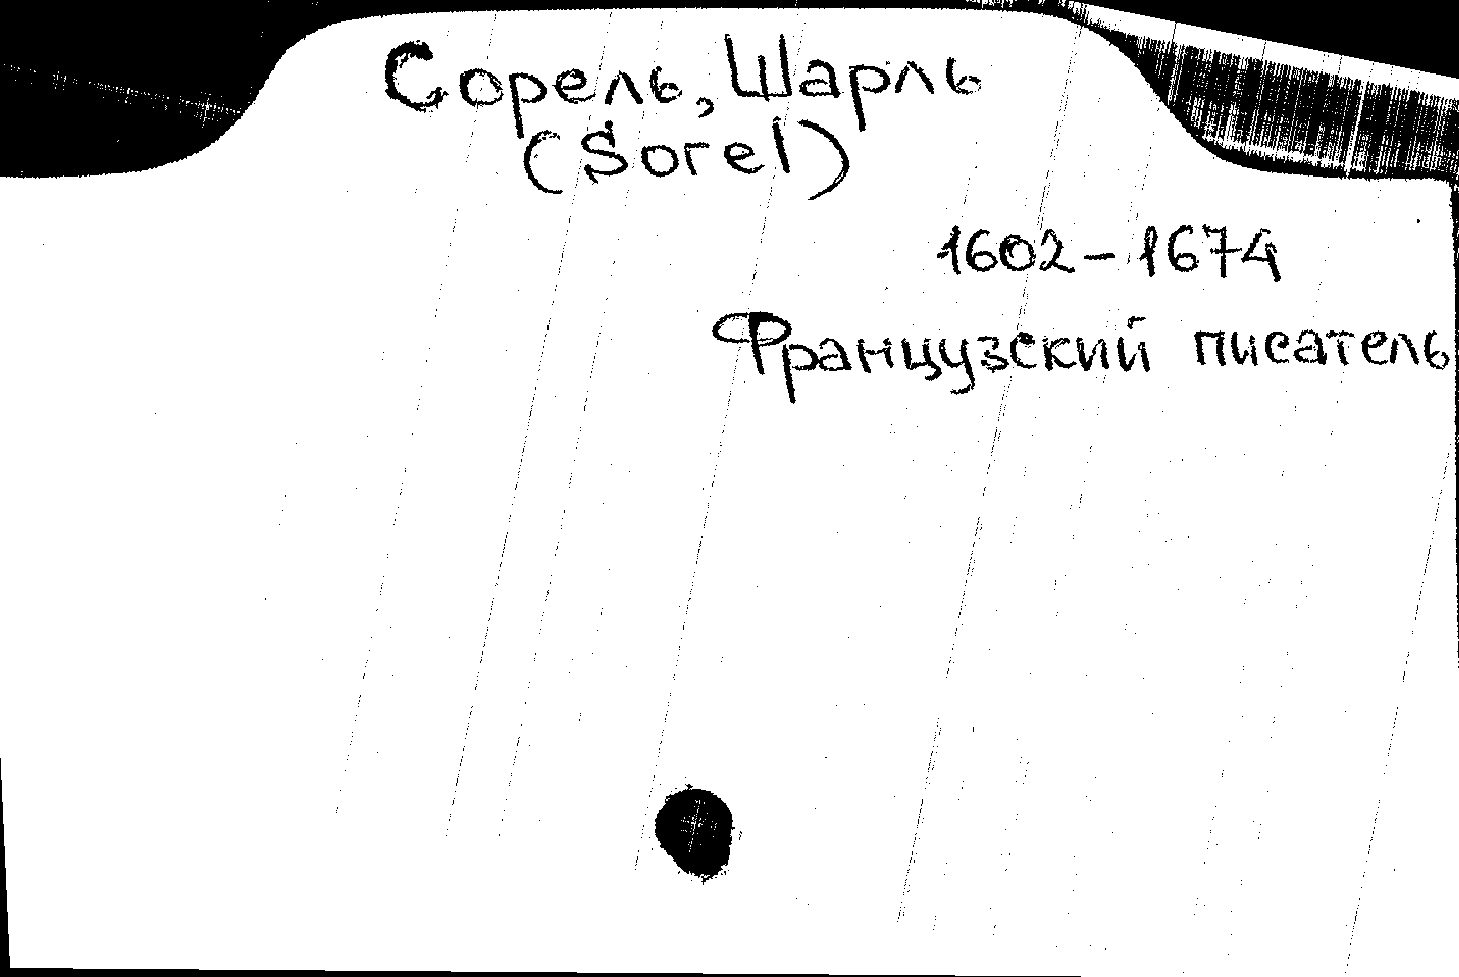 Сорель, Шарль
(Sorel)
1602-1674
Французский писатель